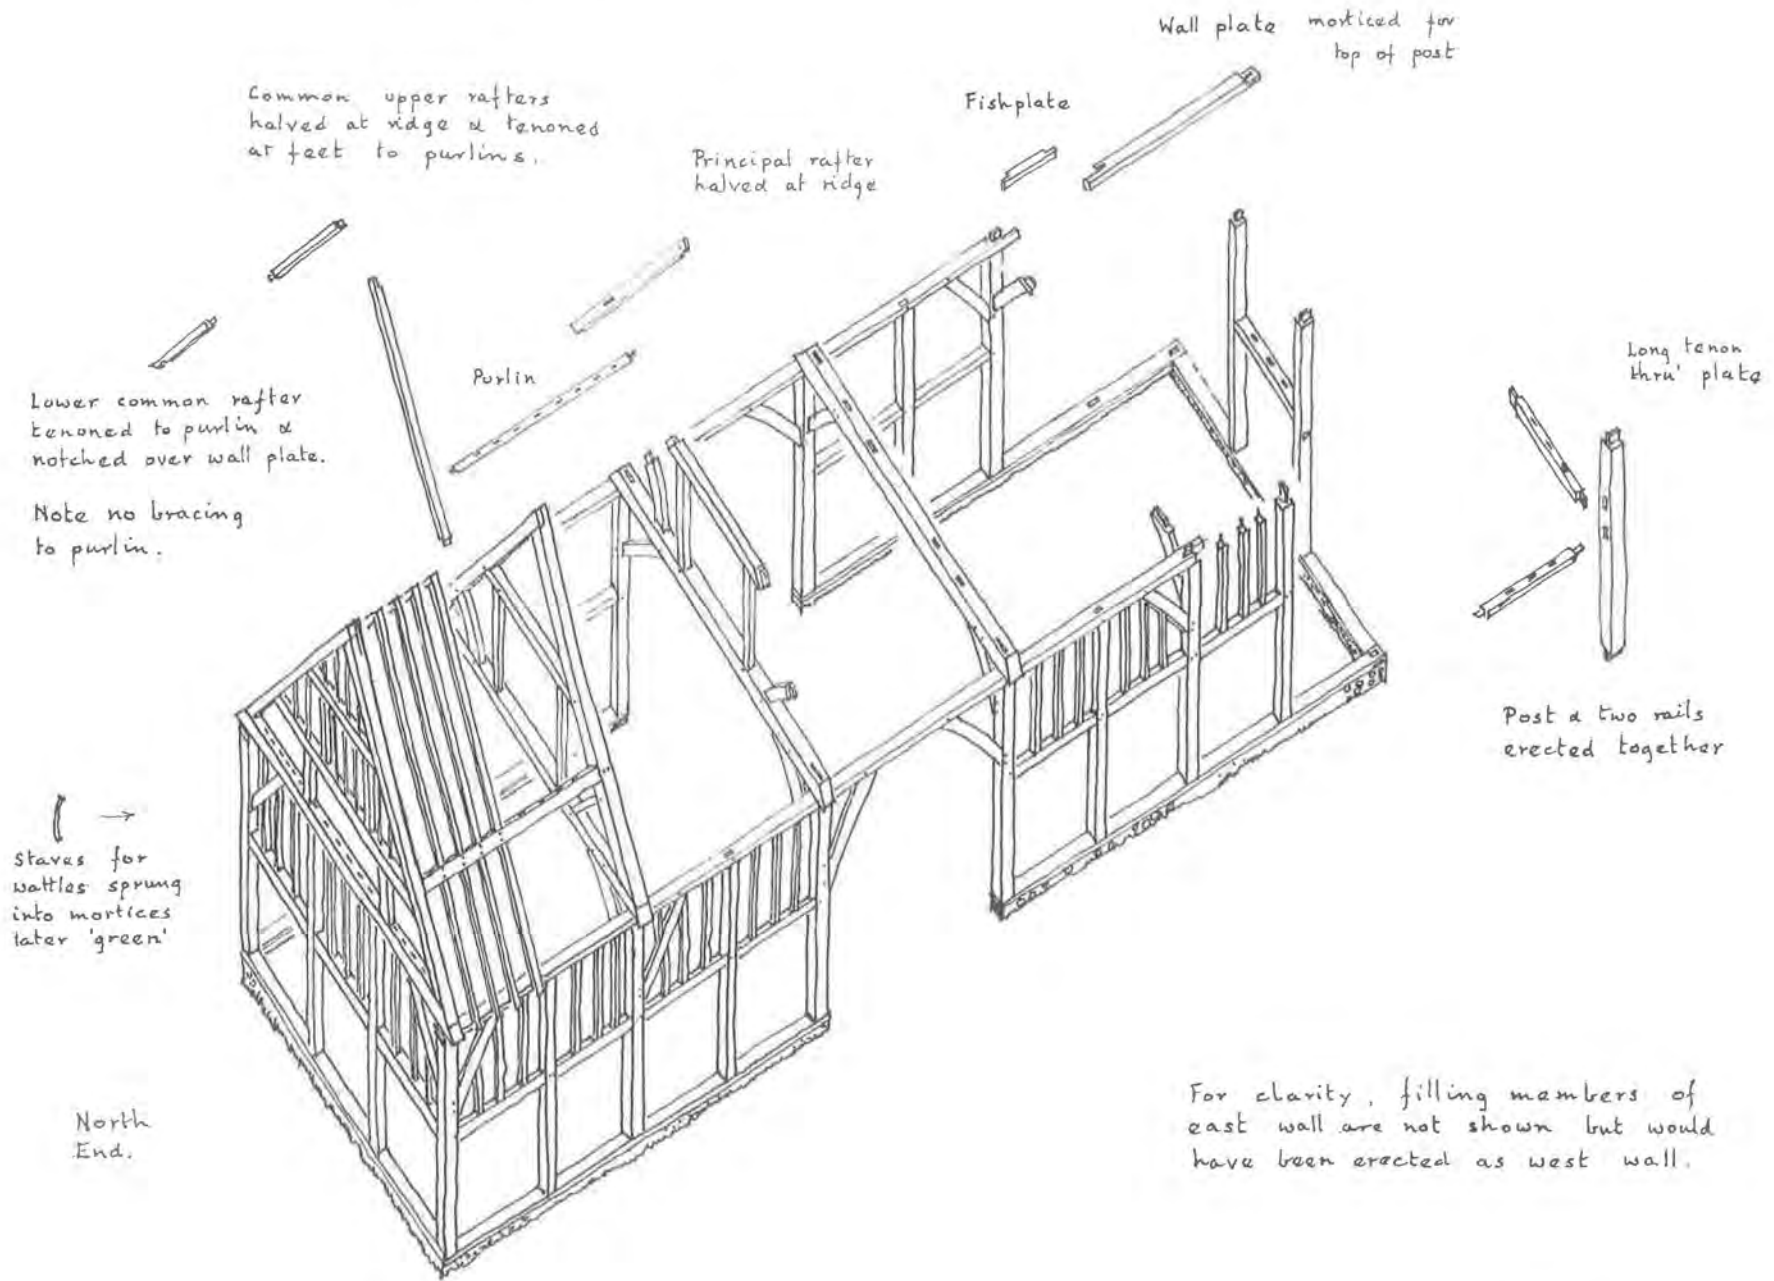 Wall plate morticed for
top of post
Common upper rafters
halved at ridge & tenoned
at feet to purlins.
Fishplate
Principal rafter
halved at ridge
Purlin
Long tenon
thru' plate
Lower common rafter
tenoned to purlin &
notched over wall plate.
Note no bracing
to purlin.
Post & two rails
erected together
Staves for
wattles sprung
into mortices
later 'green'
North
End.
For clarity, filling members of
east wall are not shown but would
have been erected as west wall.